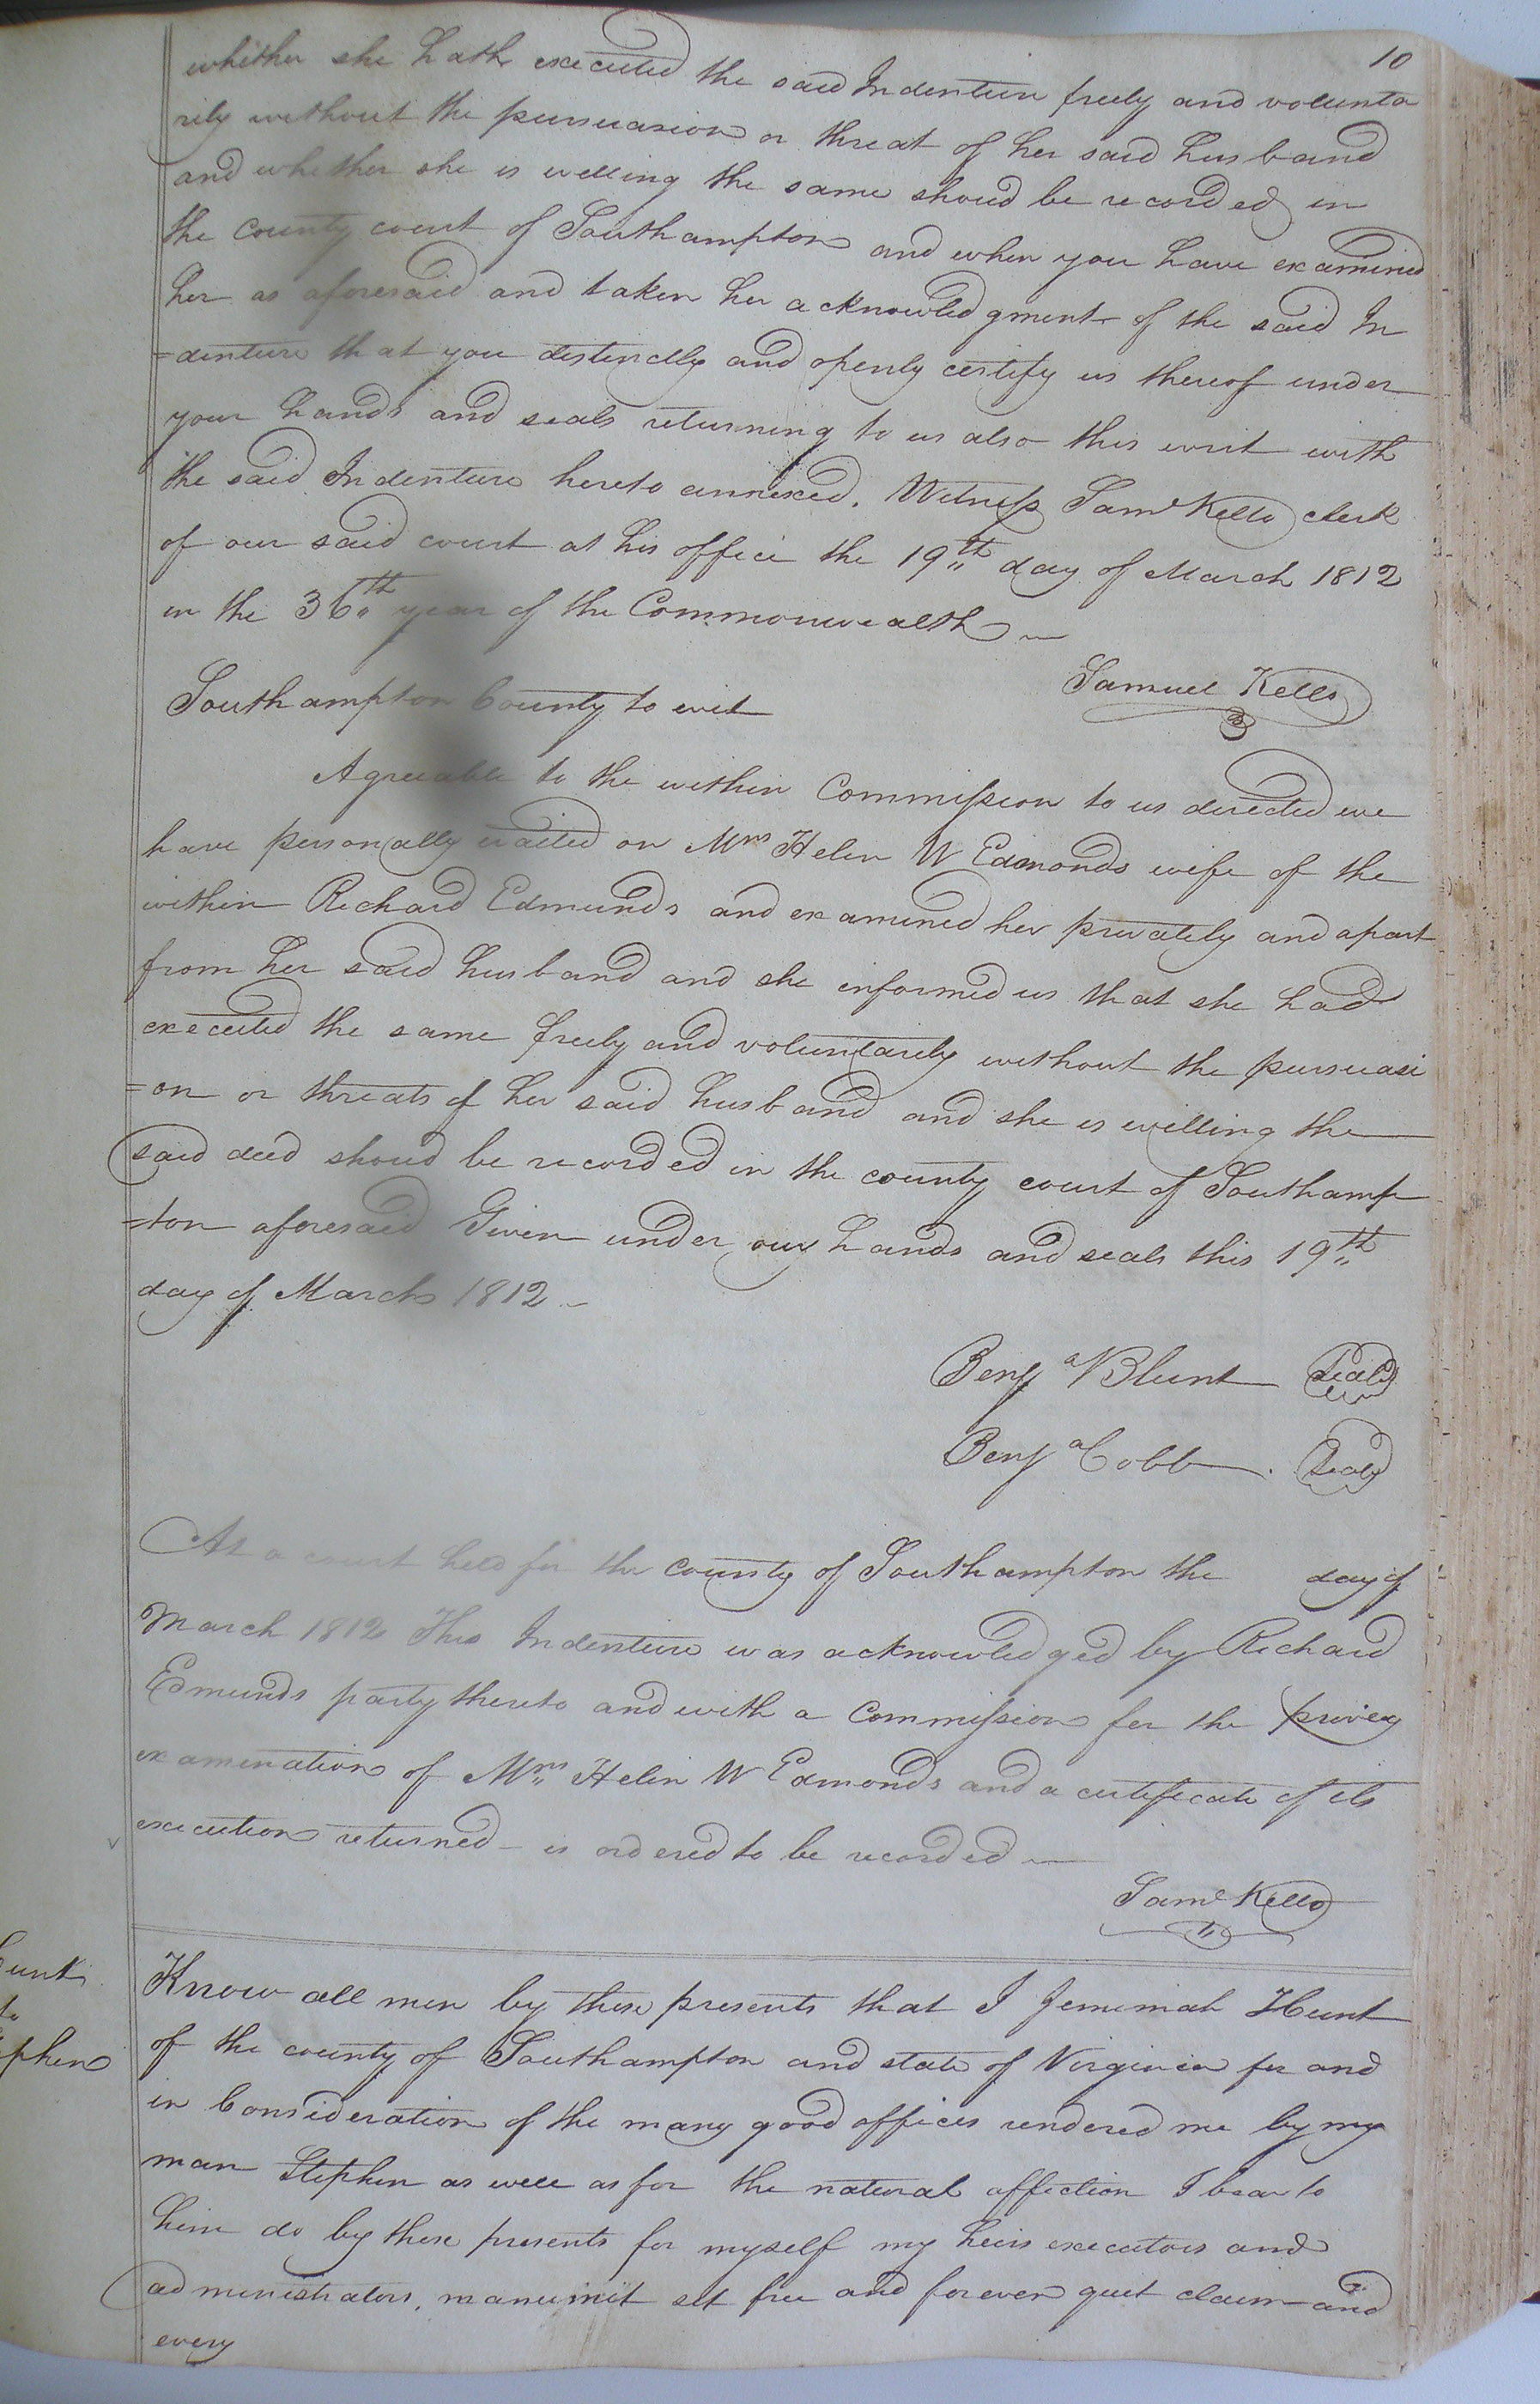 10
whither she hath executed the said Indenture freely and volunta
rily without the pursuasion or threat of her said husband
and whether she is willing the same shoud be recorded in
the County court of Southampton and when you have examined
her as aforesaid and taken her acknowledgment of the said In
=denture that you distinctly and openly certify us thereof under
your hands and seals returning to us also this writ with
the said Indenture hereto annexed. Witness Saml Kello clerk
of our said court at his office the 19th day of March 1812
in the 36th year of the Commonwealth
Samuel Kello
Southampton County to wit
Agreeable to the within Commission to us directed we
have personally waited on Mrs Helen W Edmonds wife of the
within Richard Edmunds and examined her privately and apart
from her said husband and she informed us that she had
executed the same freely and voluntarily without the pursuasi
=on or threats of her said husband and she is willing the
said deed shoud be recorded in the county court of Southamp
=ton aforesaid Given under our hands and seals this 19th
day of March 1812
Benja Blunt Seal
Benja Cobb. Seal
At a court held for the county of Southampton the day of
March 1812 This Indenture was acknowledged by Richard
Edmunds party thereto and with a Commission for the privey
examination of Mrs Helen W Edmonds and a certificate of its
execution returned - is ordered to be recorded
Saml Kello
Know all men by these presents that I Jemimah Hunt
of the county of Southampton and state of Virginia for and
in Consideration of the many good offices rendered me by my
man Stephen as well as for the natural affection I bear to
him do by these presents for myself my heirs executors and
administrators, manumit set free and forever quit claim and
every
unt
to
phen